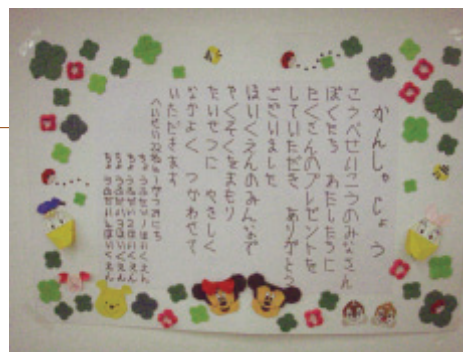 かんしゃじょう
こうべせいこうのみなさん
ぼくたち わたしたちに
たくさんのプレゼントを
していただき ありがとう
ございました
ほいくえんのみんなで
やくそくをまもり
たいせつに やさしく
なかよく つかわせて
いただきます